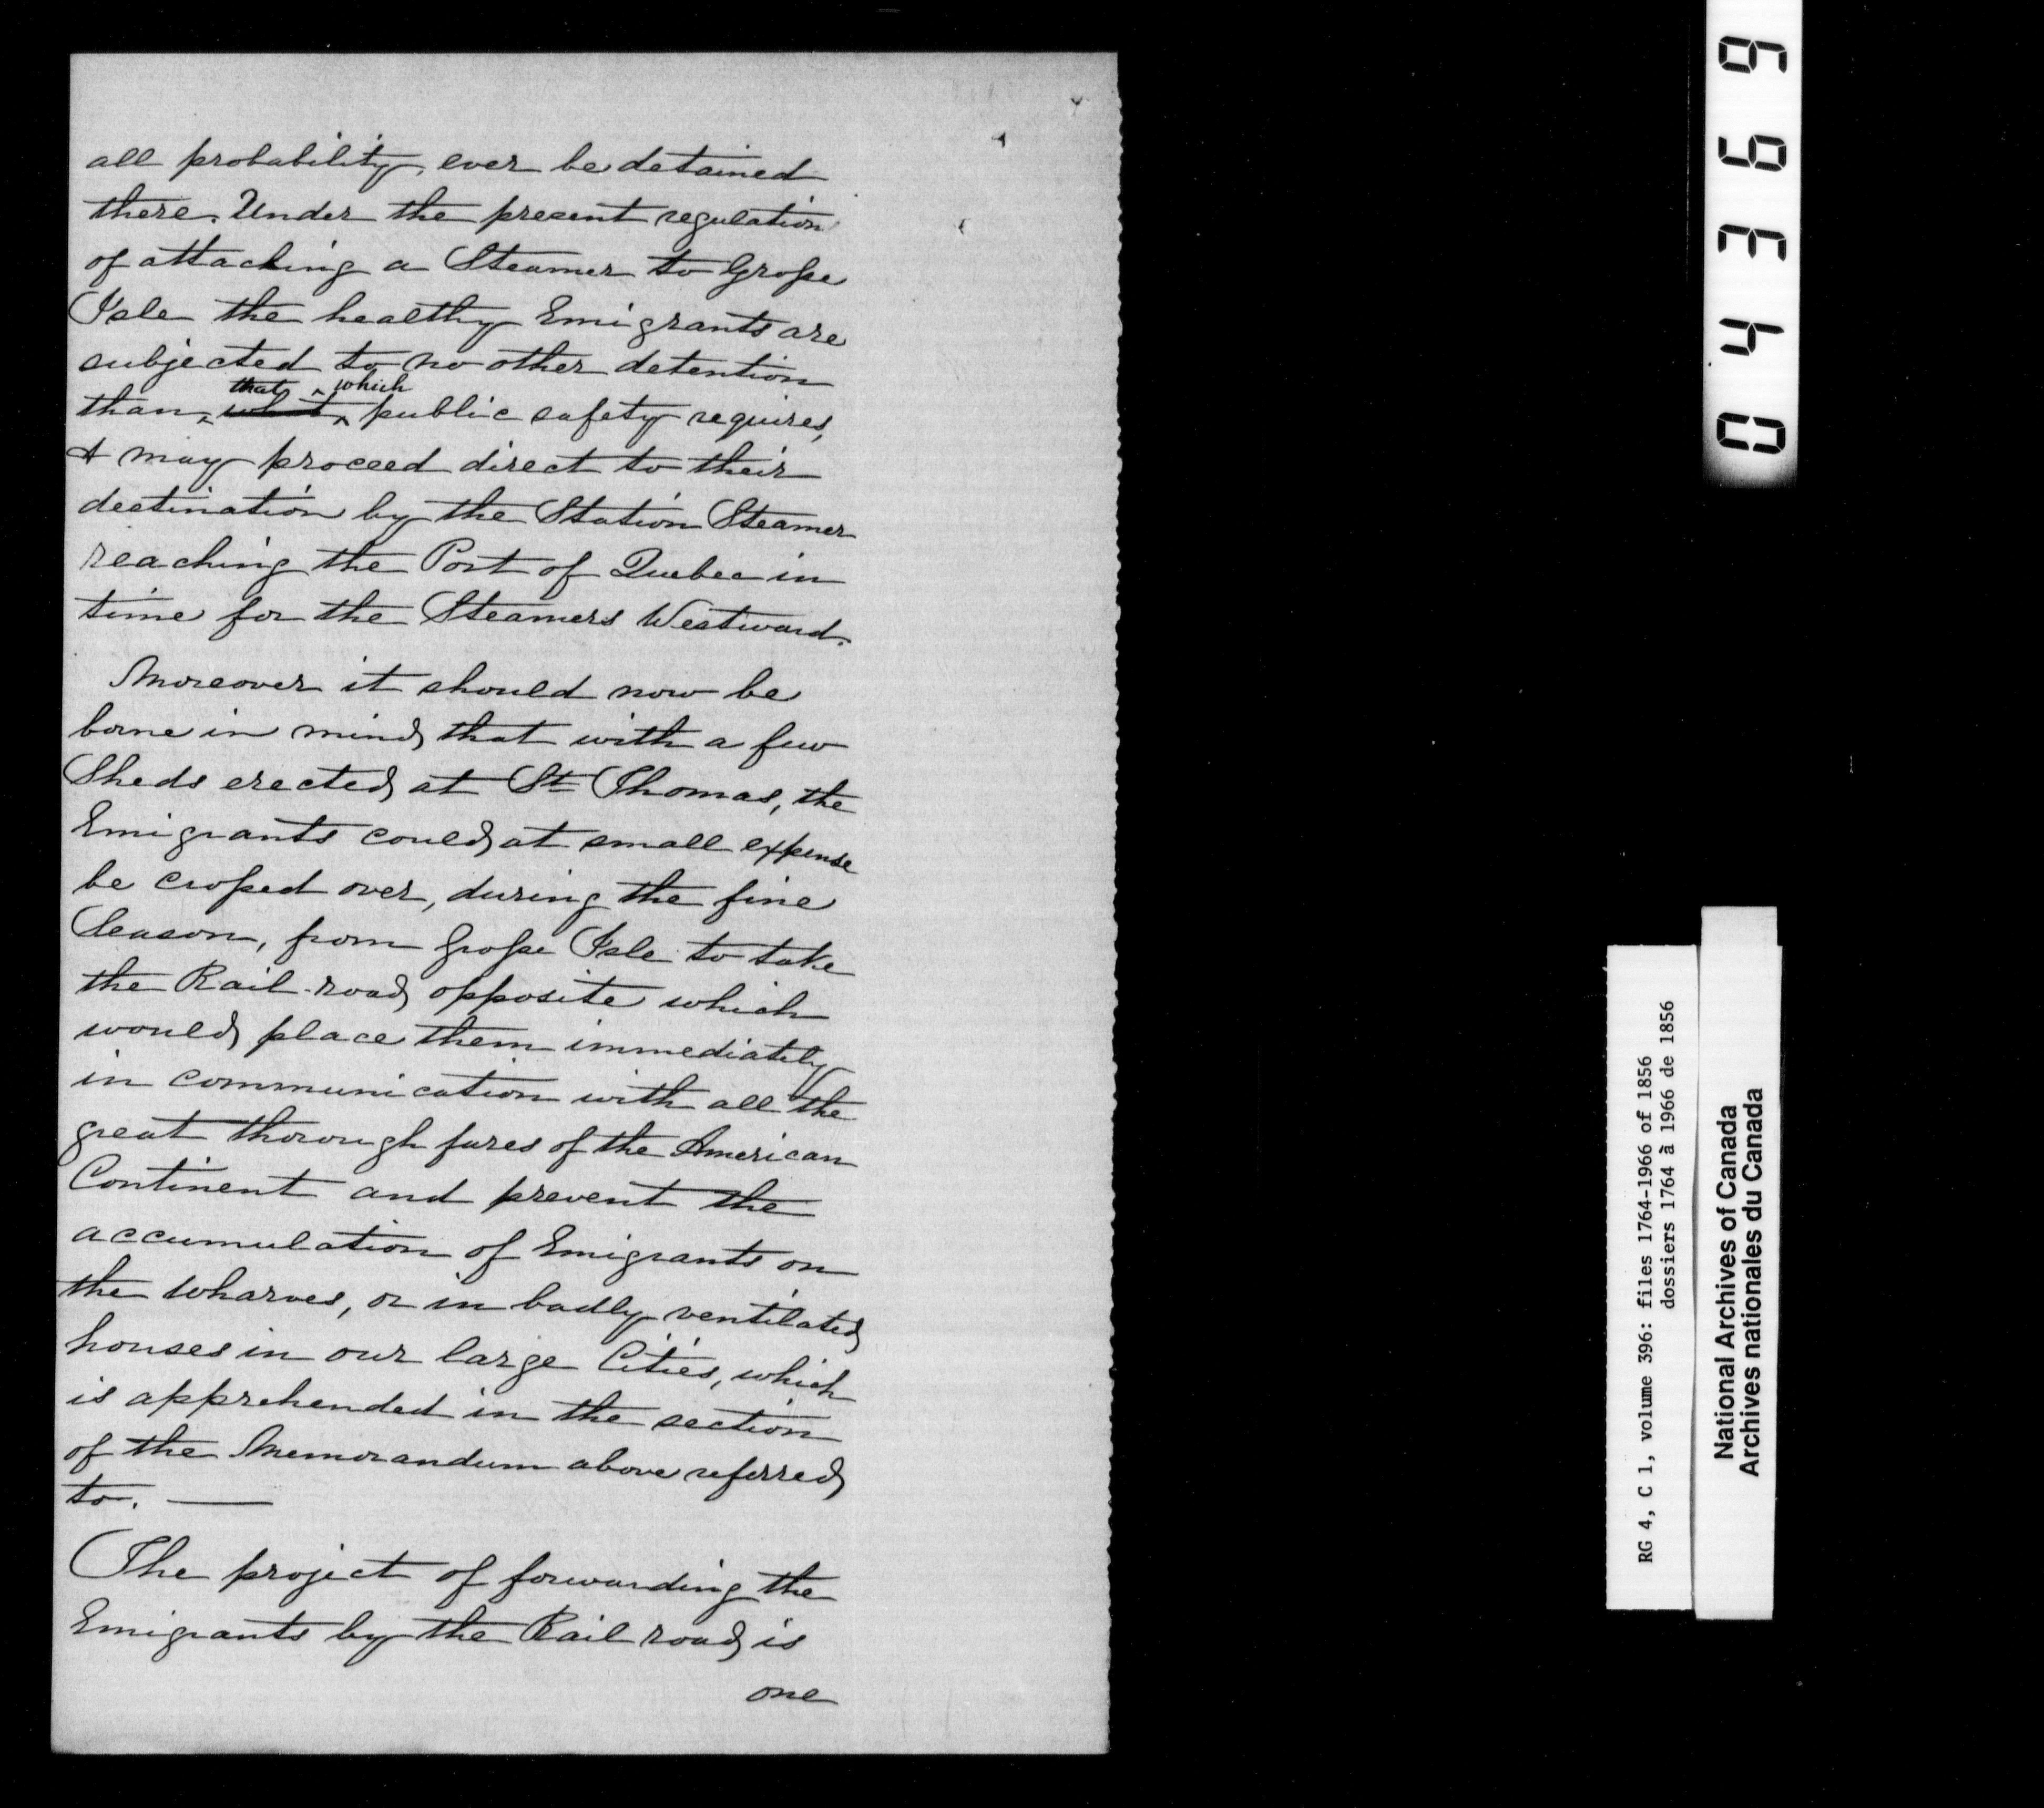 all probability, ever be detained
there. Under the present regulation
of attaching a Steamer to Grosse
Isle the healthy Emigrants are
subjected to no other detention
than what that which public safety requires,
& may proceed direct to their
destination by the Station Steamer
reaching the Port of Quebec in
time for the Steamers Westward.
Moreover it should now be
borne in mind, that with a few
Sheds erected at St Thomas, the
Emigrants could, at small expense
be crossed over, during the fine
Season, from Grosse Isle to take
the Rail-road opposite which
would place them immediately
in communication with all the
great thorough fares of the American
Continent and prevent the
accumulation of Emigrants on
the wharves, or in badly ventilated
houses in our large Cities, which
is apprehended in the section
of the Memorandum above referred
to. —
The project of forwarding the
Emigrants by the Rail road is
one
04369
RG 4, C 1, volume 396: files 1764-1966 of 1856
dossiers 1764 à 1966 de 1856
National Archives of Canada
Archives nationales du Canada